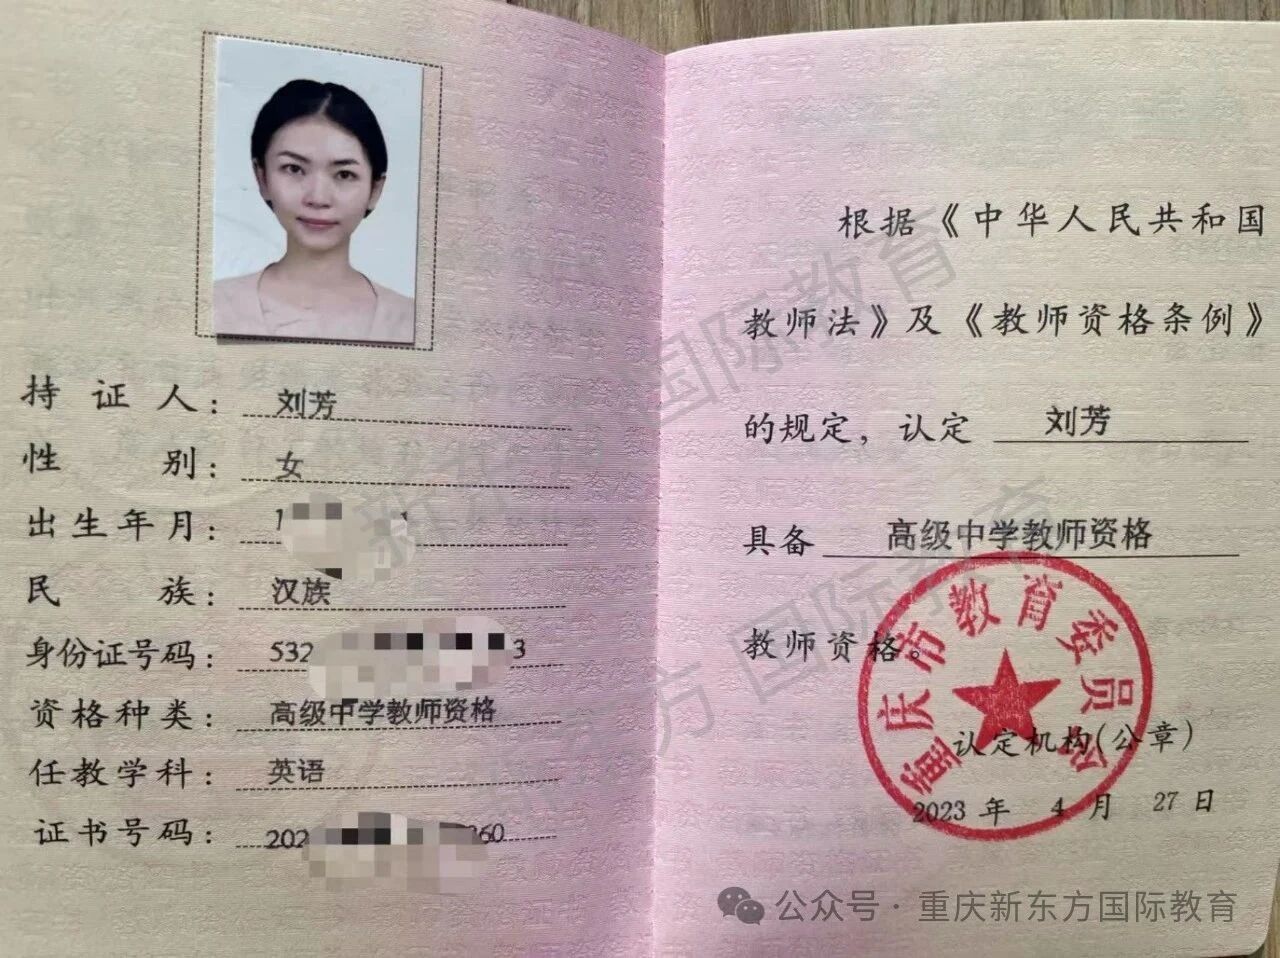 持证人：刘芳
性别：女
出生年月：1
民族：汉族
身份证号码：532 3
资格种类：高级中学教师资格
任教学科：英语
证书号码：202 360
根据《中华人民共和国
教师法》及《教师资格条例》
的规定，认定 刘芳
具备 高级中学教师资格
教师资格。
重庆市教育委员会
认定机构(公章)
2023 年 4 月 27 日
国际教育
国际教育
公众号 · 重庆新东方国际教育